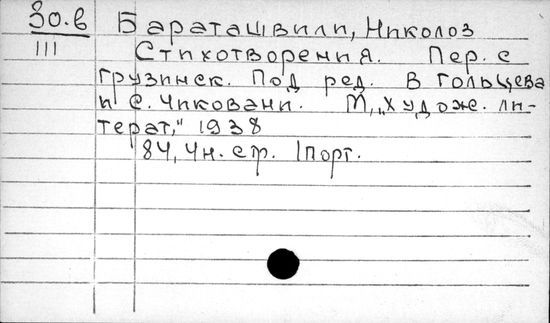 30.в Бараташвили, Николоз
III Стихотворения. Пер. с
грузинск. Под ред. В Гольцева
и С. Чиковани. М, „Худож. ли-
терат," 1938
84, 4н. стр. 1 порт.